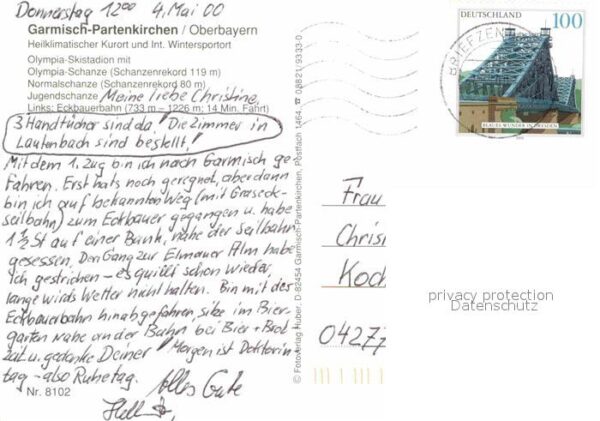 Donnerstag 12⁰⁰ 4. Mai 00
Garmisch-Partenkirchen / Oberbayern
Heilklimatischer Kurort und Int. Wintersportort
Olympia-Skistadion mit
Olympia-Schanze (Schanzenrekord 119 m)
Normalschanze (Schanzenrekord 80 m)
Jugendschanze
Meine liebe Christine,
Links: Eckbauerbahn (733 m – 1226 m; 14 Min. Fahrt)
3 Handtücher sind da! Die Zimmer in
Lautenbach sind bestellt!
Mit dem 1. Zug bin ich nach Garmisch ge-
fahren. Erst hats noch geregnet, aber dann
bin ich auf bekannten Weg (mit Graseck-
seilbahn) zum Eckbauer gegangen u. habe
1½ St auf einer Bank, nahe der Seilbahn
gesessen. Den Gang zur Elmauer Alm habe
ich gestrichen – es quillt schon wieder,
lange wirds Wetter nicht halten. Bin mit der
Eckbauerbahn hinabgefahren, sitze im Bier-
garten nahe an der Bahn bei Bier + Brot-
zeit u. gedenke Deiner! Morgen ist Doktorin-
tag – also Ruhetag.
Alles Gute
Nr. 8102
© Fotoverlag Huber, D-82454 Garmisch-Partenkirchen, Postfach 1464 ☎ 08821/933-0
BRIEFZEN
DEUTSCHLAND 100
BLAUES WUNDER IN DRESDEN
Frau
Chris
Koch
04277
privacy protection
Datenschutz